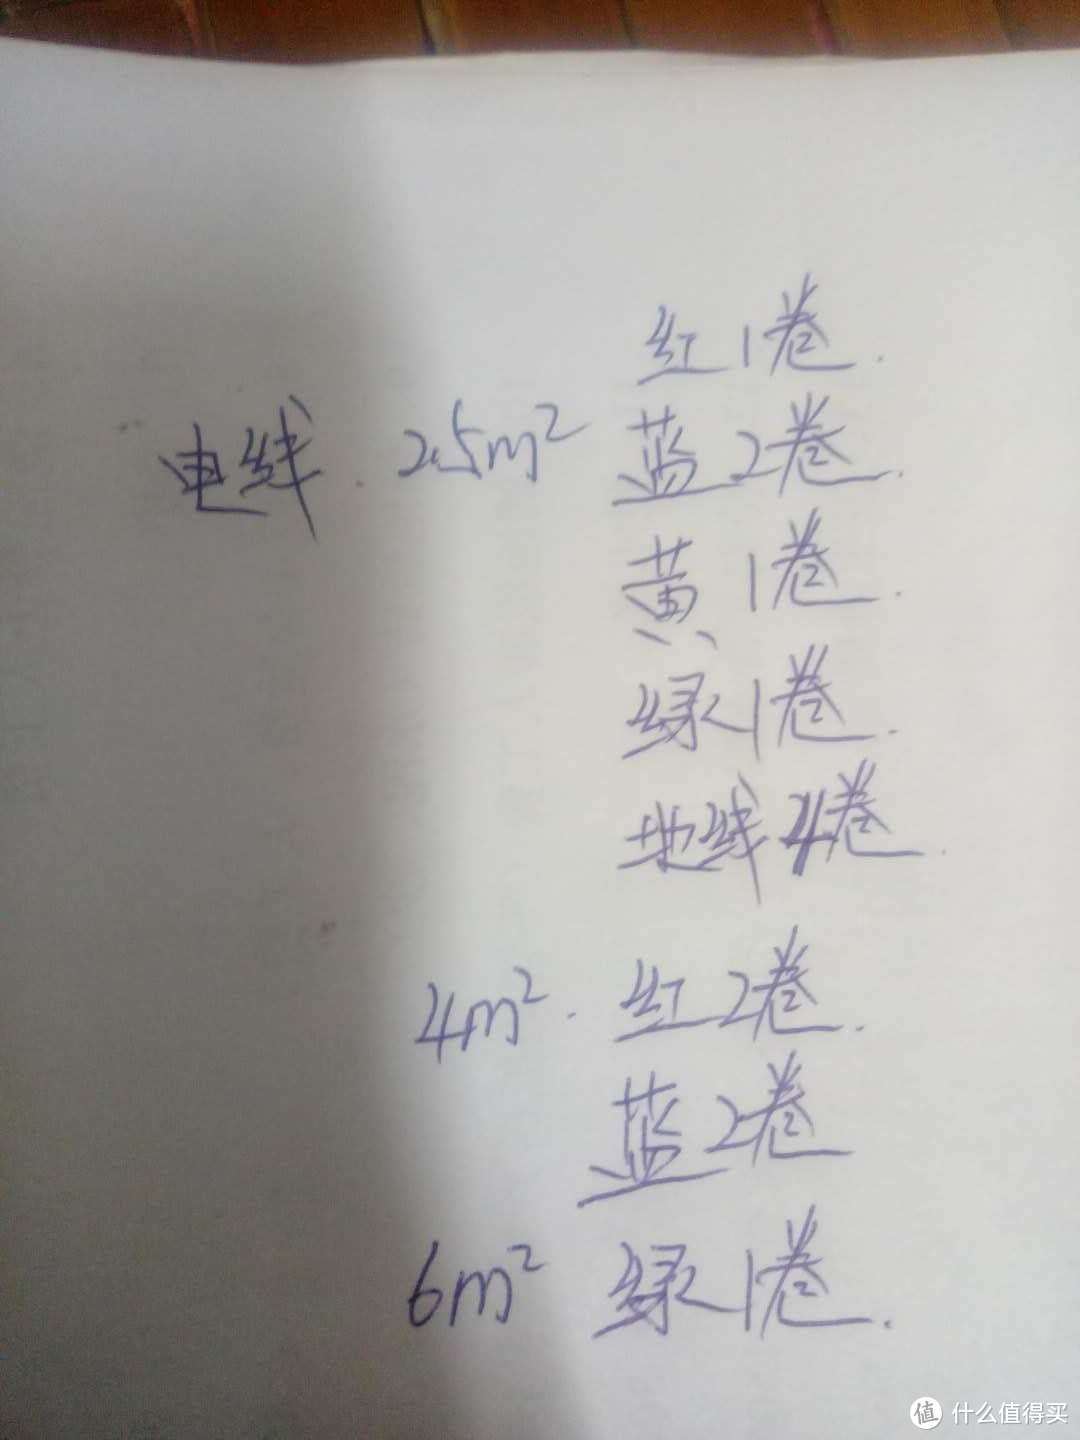 红1卷.
电线. 2.5m² 蓝2卷.
黄1卷.
绿1卷.
地线4卷.
4m². 红2卷.
蓝2卷
6m² 绿1卷.
值 什么值得买